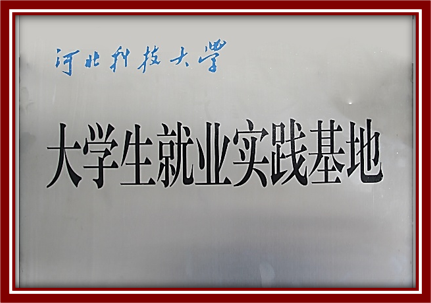 河北科技大学
大学生就业实践基地